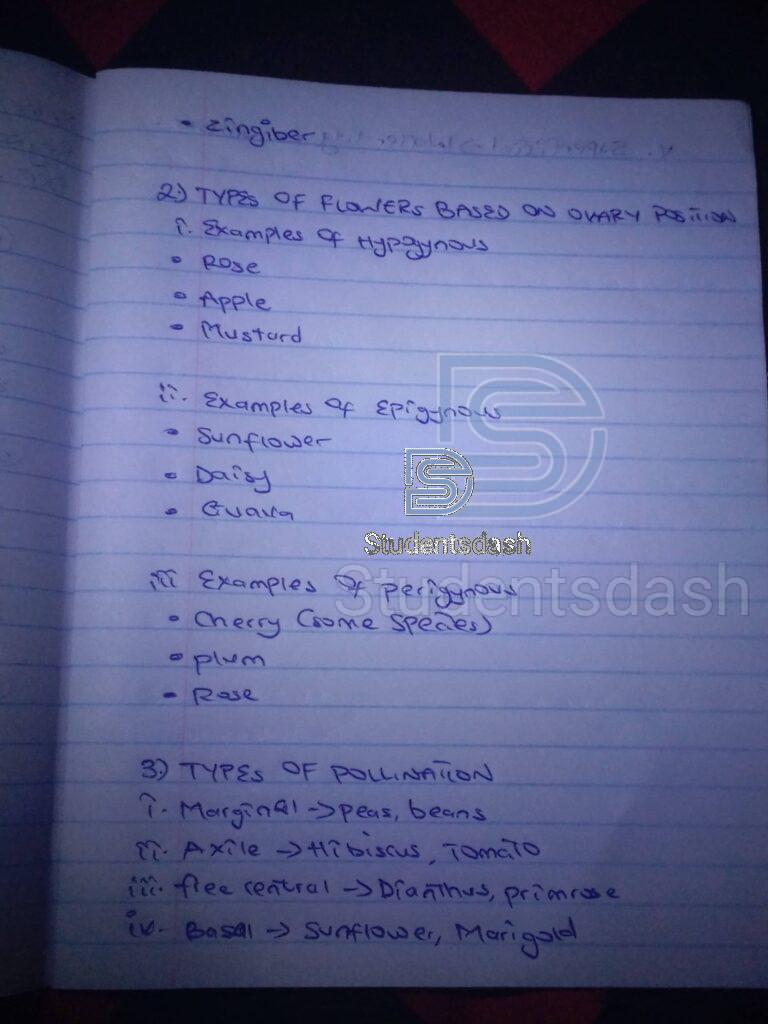 • Zingiber
2.) TYPES OF FLOWERS BASED ON OVARY POSITION
i. Examples of Hypogynous
• Rose
• Apple
• Mustard
ii. Examples of Epigynous
• Sunflower
• Daisy
• Guava
Studentsdash
iii Examples of perigynous
Studentsdash
• Cherry (some species)
• plum
• Rose
3.) TYPES OF POLLINATION
i. Marginal → peas, beans
ii. Axile → Hibiscus, Tomato
iii. free central → Dianthus, primrose
iv. Basal → Sunflower, Marigold